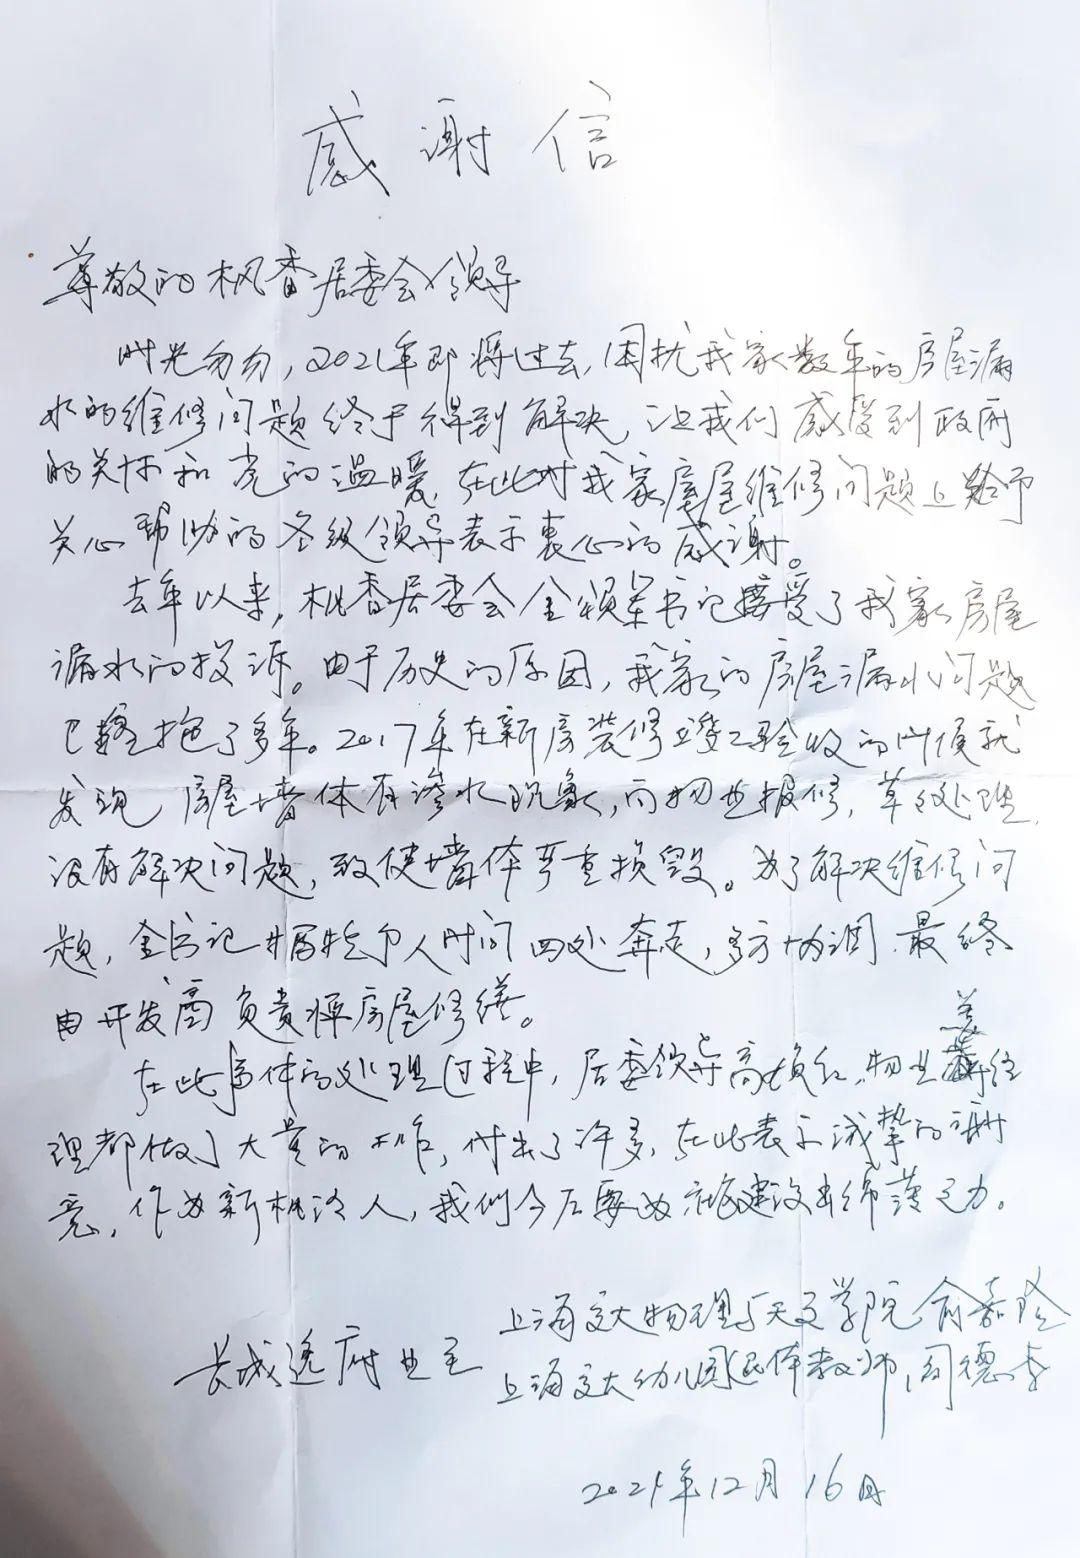 感谢信
尊敬的枫香居委会领导
时光匆匆，2021年即将过去，困扰我家数年的房屋漏
水的维修问题终于得到解决，让我们感受到政府
的关怀和党的温暖，在此对我家房屋维修问题上给予
关心帮助的各级领导表示衷心的感谢。
去年以来，枫香居委会金书记接受了我家房屋
漏水的投诉。由于历史的原因，我家的房屋漏水问题
已拖了多年。2017年在新房装修竣工验收的时候就
发现房屋墙体有渗水现象，向物业报修，草草处理，
没有解决问题，致使墙体严重损毁。为了解决维修问
题，金书记牺牲个人时间四处奔走，多方协调，最终
由开发商负责将房屋修缮。
在此事件的处理过程中，居委领导高，物业姜经
理都做了大量的工作，付出了许多，在此表示诚挚的谢
意，作为新枫泾人，我们今后要为社区建设出绵薄之力。
上海交大物理与天文学院俞嘉
长城逸府业主
上海交大幼儿园退休教师，周德
2021年12月16日